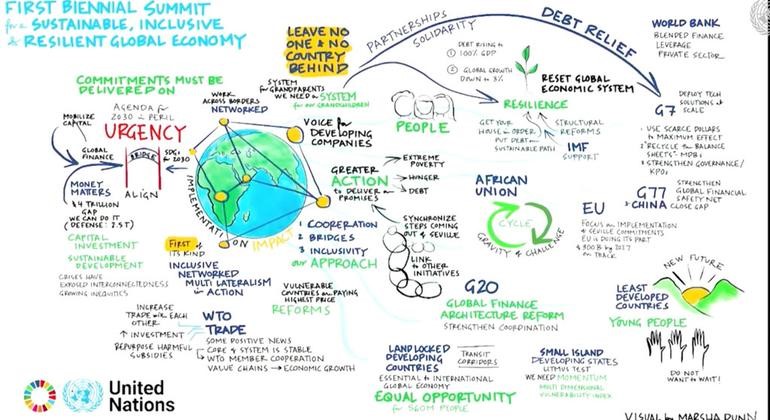 FIRST BIENNIAL SUMMIT
for a SUSTAINABLE, INCLUSIVE
& RESILIENT GLOBAL ECONOMY
COMMITMENTS MUST BE
DELIVERED ON
MOBILIZE
CAPITAL
AGENDA for
2030 in PERIL
URGENCY
GLOBAL
FINANCE
BRIDGE
SDGs
for 2030
ALIGN
MONEY
MATTERS
$4 TRILLION
GAP
WE CAN DO IT
(DEFENSE: 2.5T)
CAPITAL
INVESTMENT
SUSTAINABLE
DEVELOPMENT
CRISES HAVE
EXPOSED INTERCONNECTEDNESS
GROWING INEQUITIES
WORK
ACROSS BORDERS
NETWORKED
IMPLEMENTATION IMPACT
FIRST of
ITS KIND
INCLUSIVE
NETWORKED
MULTI LATERALISM
in ACTION
INCREASE
TRADE with EACH
OTHER
↑ INVESTMENT
REPURPOSE HARMFUL
SUBSIDIES
WTO
TRADE
SOME POSITIVE NEWS
CORE of SYSTEM IS STABLE
WTO MEMBER COOPERATION
VALUE CHAINS → ECONOMIC GROWTH
LEAVE NO
ONE & NO
COUNTRY
BEHIND
SYSTEM
for GRANDPARENTS
WE NEED a SYSTEM
for our GRANDCHILDREN
VOICE for
DEVELOPING
COMPANIES
PEOPLE
GREATER
ACTION
to DELIVER on
PROMISES
EXTREME
POVERTY
HUNGER
DEBT
1 COOPERATION
2 BRIDGES
3 INCLUSIVITY
our APPROACH
VULNERABLE
COUNTRIES are PAYING
HIGHEST PRICE
REFORMS
SYNCHRONIZE
STEPS COMING
OUT of SEVILLE
LINK
to OTHER
INITIATIVES
PARTNERSHIPS
SOLIDARITY
DEBT RELIEF
DEBT RISING to
① 100% GDP
② GLOBAL GROWTH
DOWN to 3%
RESET GLOBAL
ECONOMIC SYSTEM
RESILIENCE
GET YOUR
HOUSE in ORDER,
PUT DEBT on
SUSTAINABLE PATH
STRUCTURAL
REFORMS
IMF
SUPPORT
AFRICAN
UNION
CYCLE
GRAVITY of CHALLENGE
G20
GLOBAL FINANCE
ARCHITECTURE REFORM
STRENGTHEN COORDINATION
LAND LOCKED
DEVELOPING
COUNTRIES
TRANSIT
CORRIDORS
ESSENTIAL to INTERNATIONAL
GLOBAL ECONOMY
EQUAL OPPORTUNITY
for 560M PEOPLE
SMALL ISLAND
DEVELOPING STATES
LITMUS TEST
WE NEED MOMENTUM
MULTI DIMENSIONAL
VULNERABILITY INDEX
WORLD BANK
BLENDED FINANCE
LEVERAGE
PRIVATE SECTOR
G7
DEPLOY TECH
SOLUTIONS at
SCALE
1 USE SCARCE DOLLARS
to MAXIMUM EFFECT
2 RECYCLE the BALANCE
SHEETS-MDBs
3 STRENGTHEN GOVERNANCE/
KPOs
G77
+ CHINA
STRENGTHEN
GLOBAL FINANCIAL
SAFETY NET
CLOSE GAP
EU
FOCUS on IMPLEMENTATION
of SEVILLE COMMITMENTS
EU is DOING ITS PART
$300B by 2027
on TRACK
NEW FUTURE
LEAST
DEVELOPED
COUNTRIES
YOUNG PEOPLE
DO NOT
WANT to WAIT!
United
Nations
VISUAL by MARSHA DUNN